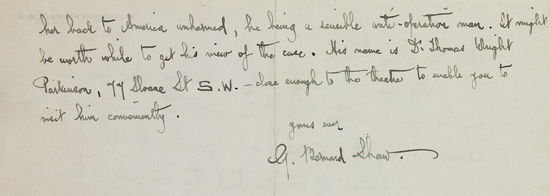 her back to America unharmed, he being a sensible anti-operation man. It might
be worth while to get his view of the case. His name is Dr. Thomas Wright
Parkinson, 77 Sloane St S.W. – close enough to the theatre to enable you to
visit him conveniently.
yours ever
G. Bernard Shaw.